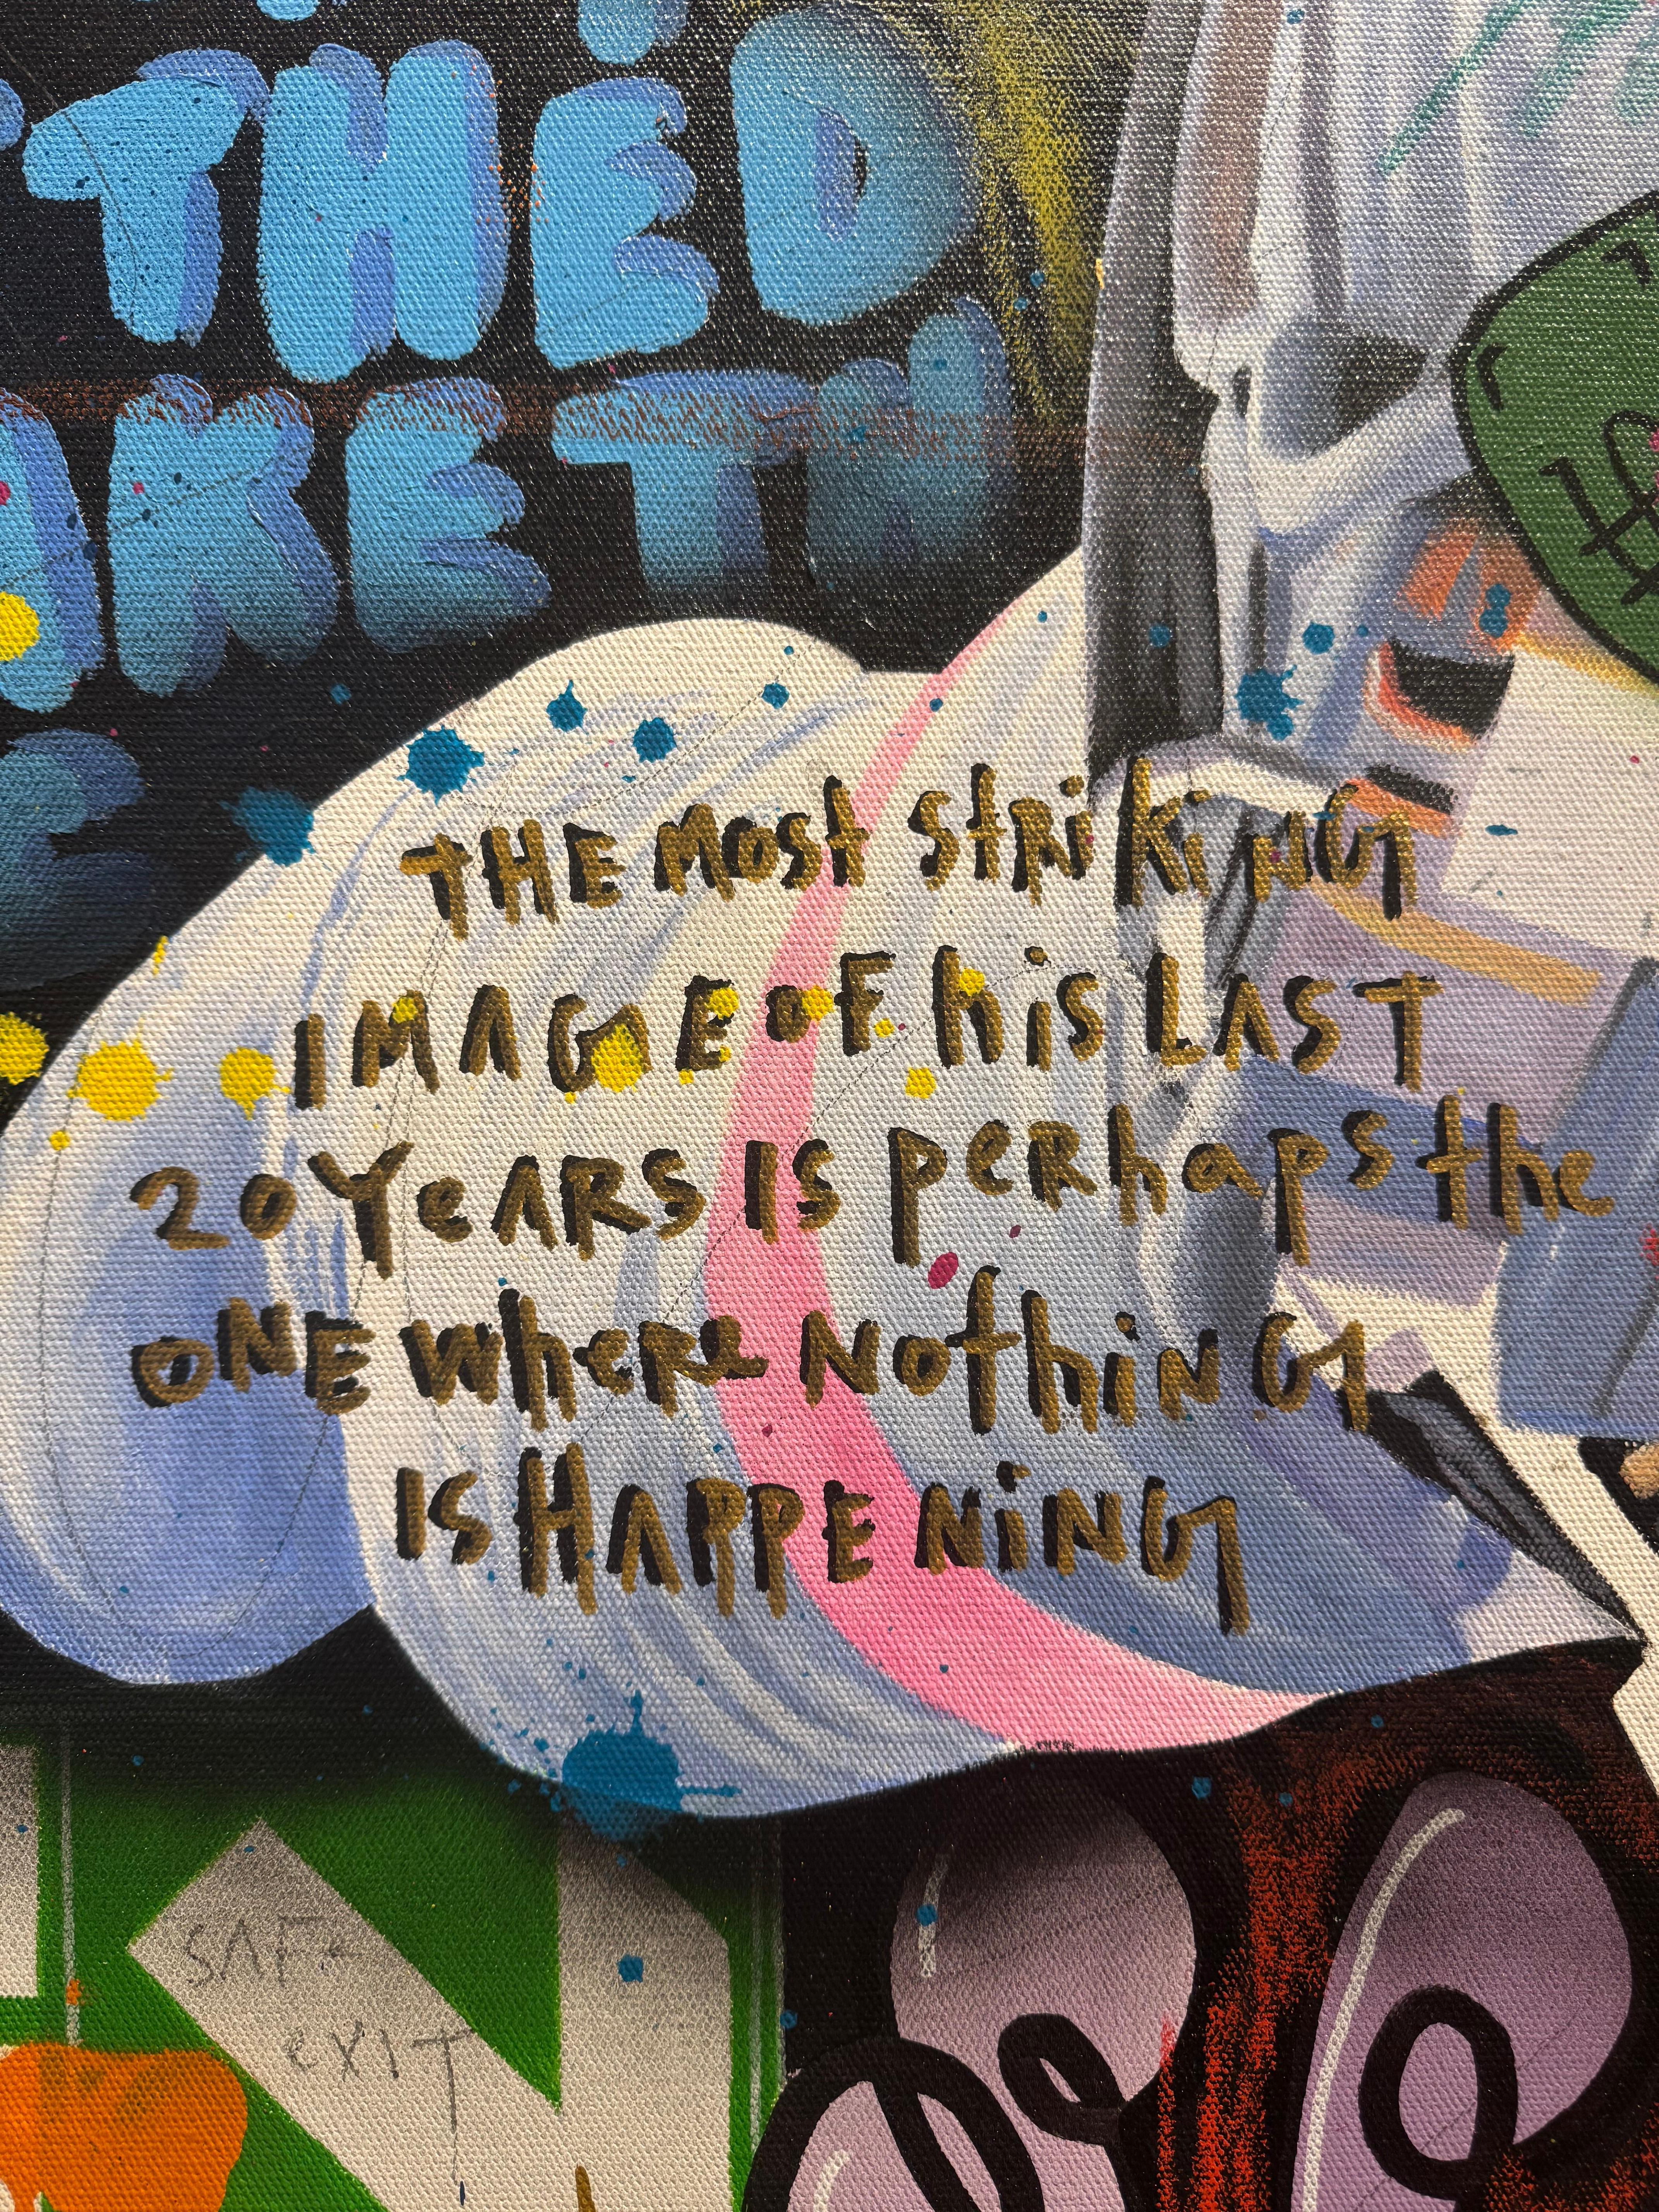 THED
KE TH
THE MOST StRiKiNG
IMAGE OF hiS LAST
20 YeARS IS peRhaps the
ONE WheRe NothiNG
IS HAPPENiNG
SAFe
eXIT